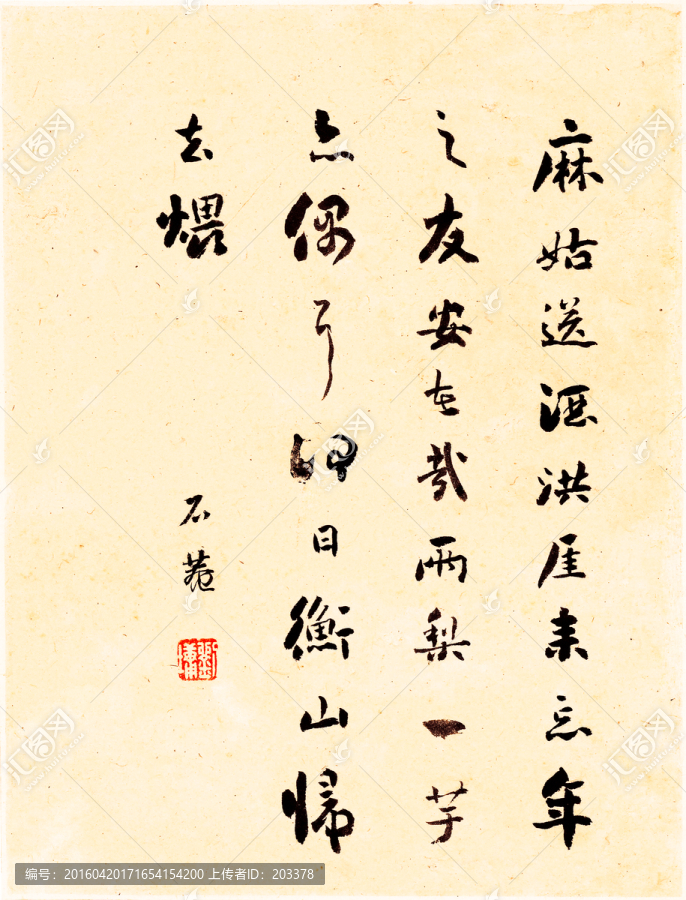 麻姑送酒洪厓来忘年
之友安在哉兩梨一芋
亦偶耳日衡山歸
去煨
石菴
编号:20160420171654154200 上传者ID:203378
汇图网